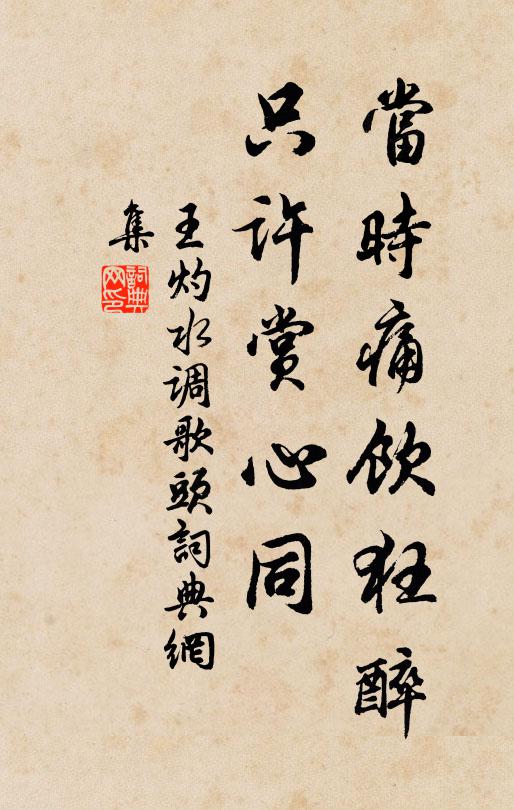 當時痛飲狂醉
只許賞心同
王灼水调歌頭詞典網
集
詞典网印